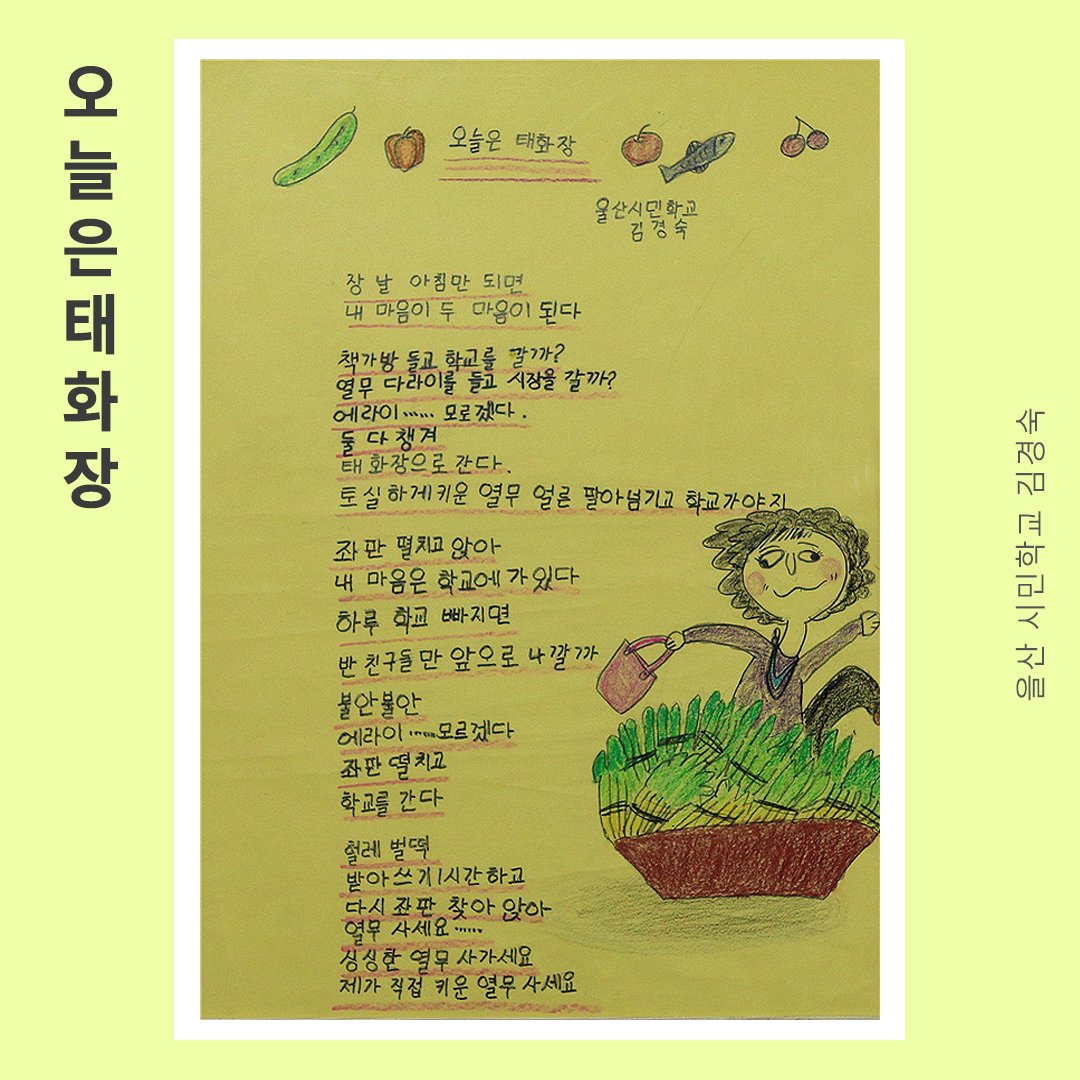 오늘은태화장
오늘은 태화장
울산시민학교
김경숙
장날 아침만 되면
내 마음이 두 마음이 된다
책가방 들고 학교를 갈까?
열무 다라이를 들고 시장을 갈까?
에라이...... 모로겠다.
둘 다 챙겨
태화장으로 간다.
토실하게키운 열무 얼른 팔아넘기고 학교가야지
좌판 펼치고 앉아
내 마음은 학교에 가있다
하루 학교 빠지면
반 친구들만 앞으로 나갈까
불안불안
에라이......모르겠다
좌판 펼치고
학교를 간다
헐레벌떡
받아쓰기1시간하고
다시 좌판 찾아 앉아
열무 사세요......
싱싱한 열무 사가세요
제가 직접 키운 열무 사세요
울산 시민학교 김경숙